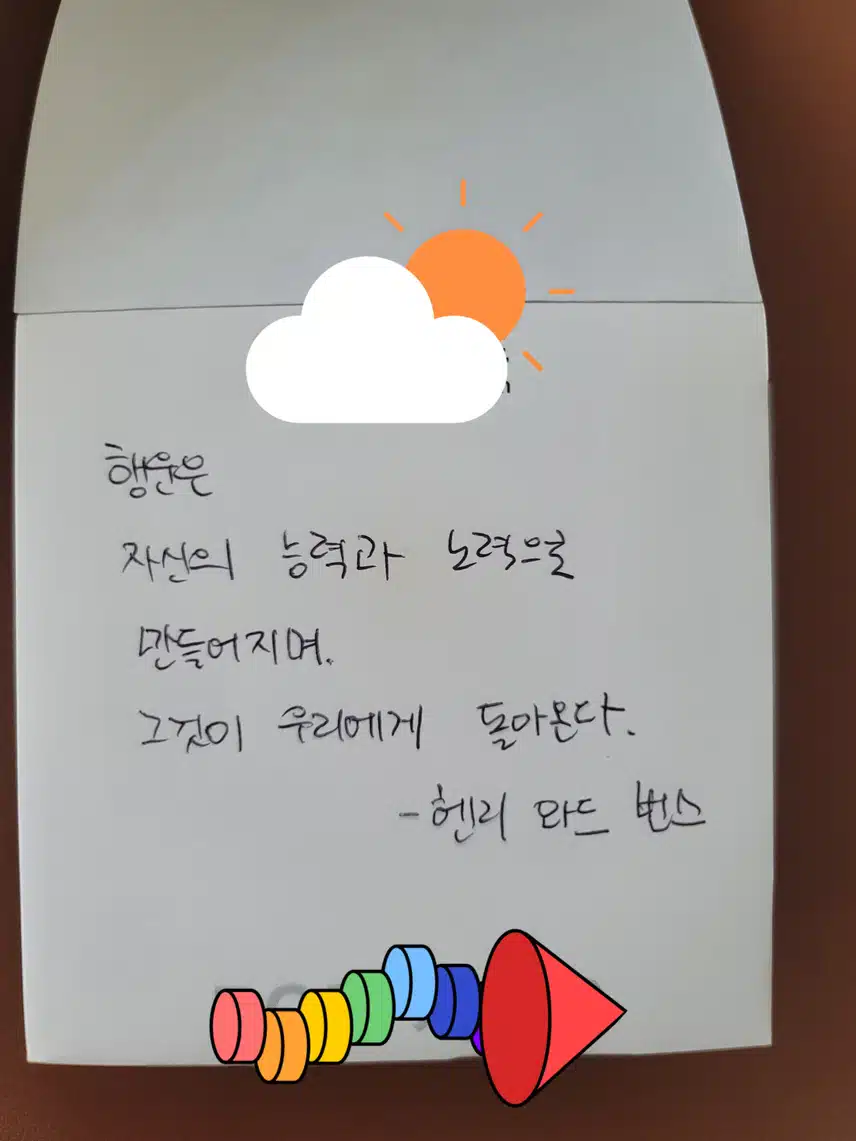 행운은
자신의 능력과 노력으로
만들어지며.
그것이 우리에게 돌아온다.
- 헨리 와드 번스